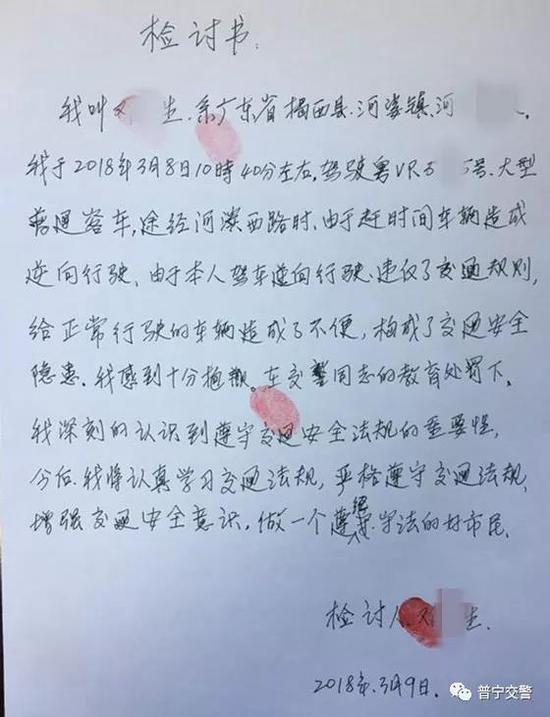 检讨书.
我叫 生.系广东省揭西县.河婆镇.河 .
我于2018年3月8日10時40分左右.驾驶粤VR.5 5号.大型
普通客车,途经河滨西路时.由于赶时间车辆造成
逆向行驶.由于本人驾车逆向行驶.违反了交通规则,
给正常行驶的车辆造成了不便,构成了交通安全
隐患.我感到十分抱歉。在交警同志的教育处罚下.
我深刻的认识到遵守交通安全法规的重要性,
今后.我将认真学习交通法规,严格遵守交通法规,
增强交通安全意识,做一个遵纪守法的好市民.
检讨人. 生.
2018年.3月9日.
普宁交警